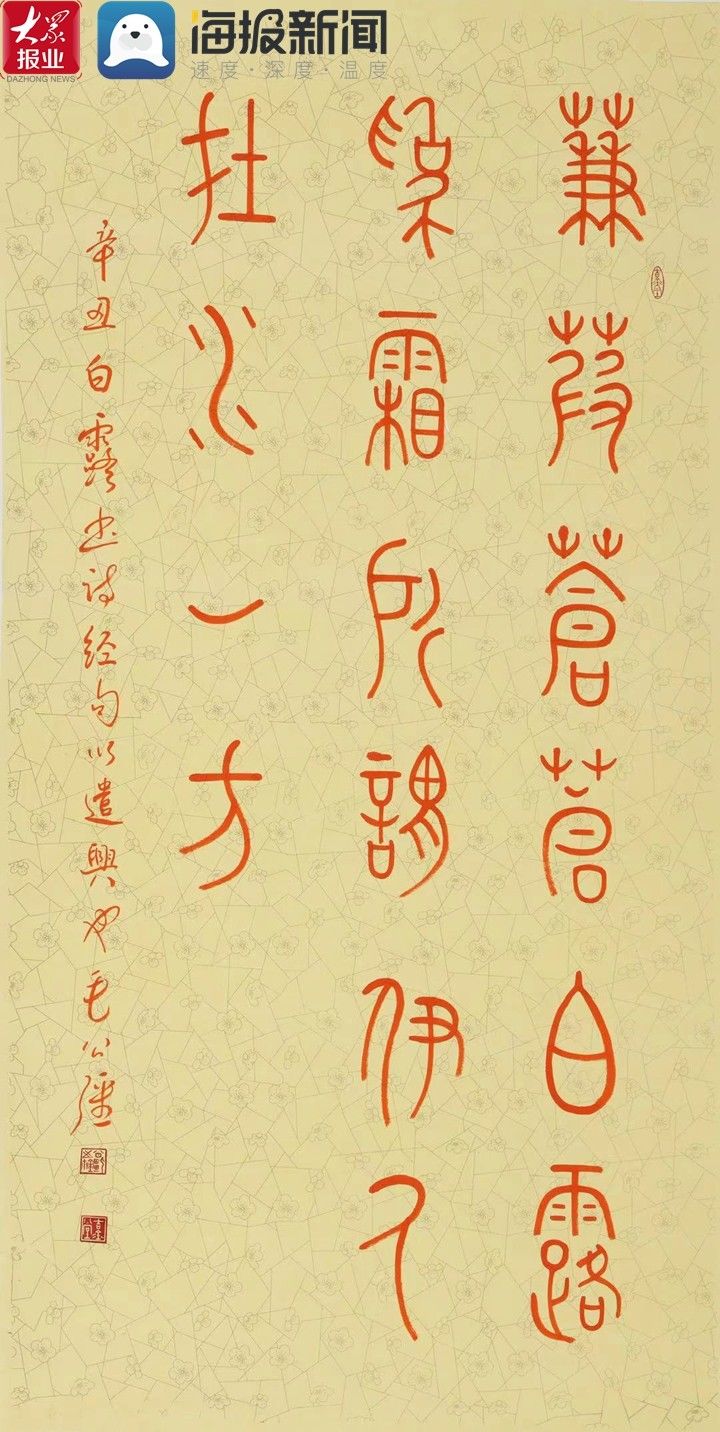 大眾
报业
DAZHONG NEWS
海报新闻
速度·深度·温度
蒹葭蒼蒼白露
為霜所謂伊人
在水一方
辛丑白露书诗经句以遣興也毛公彊